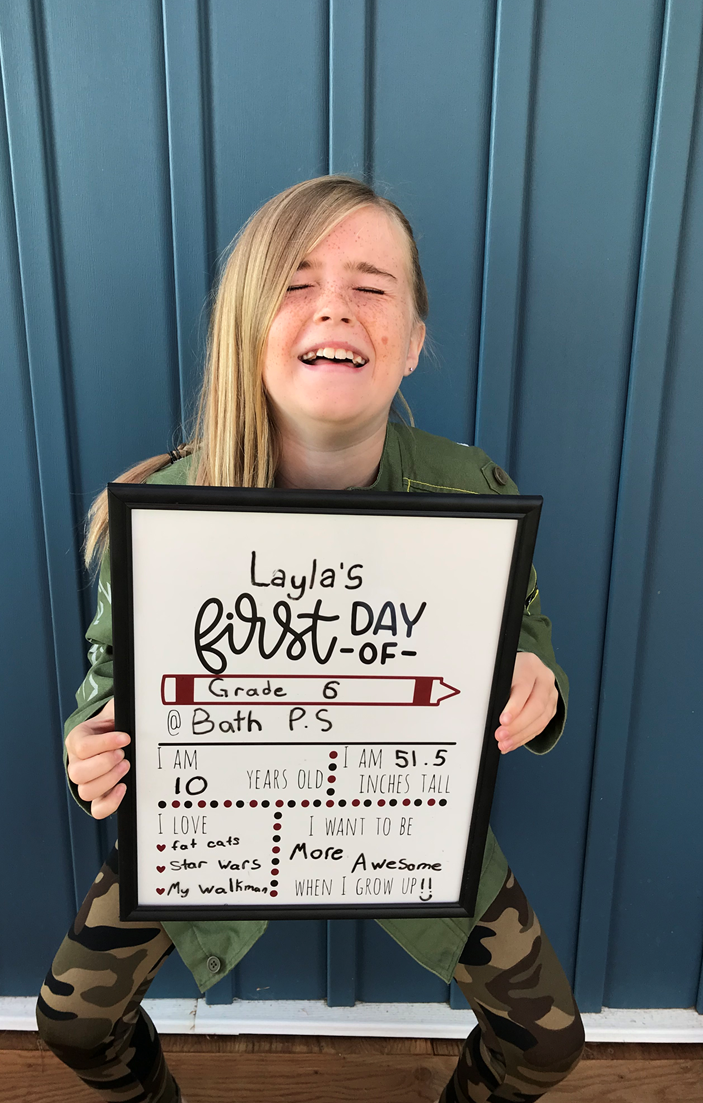 Layla's
first DAY
-OF-
Grade 6
@ Bath P.S
I AM
10 YEARS OLD
I AM 51.5
INCHES TALL
I LOVE
♥ fat cats
♥ Star Wars
♥ My Walkman
I WANT TO BE
More Awesome
WHEN I GROW UP!!